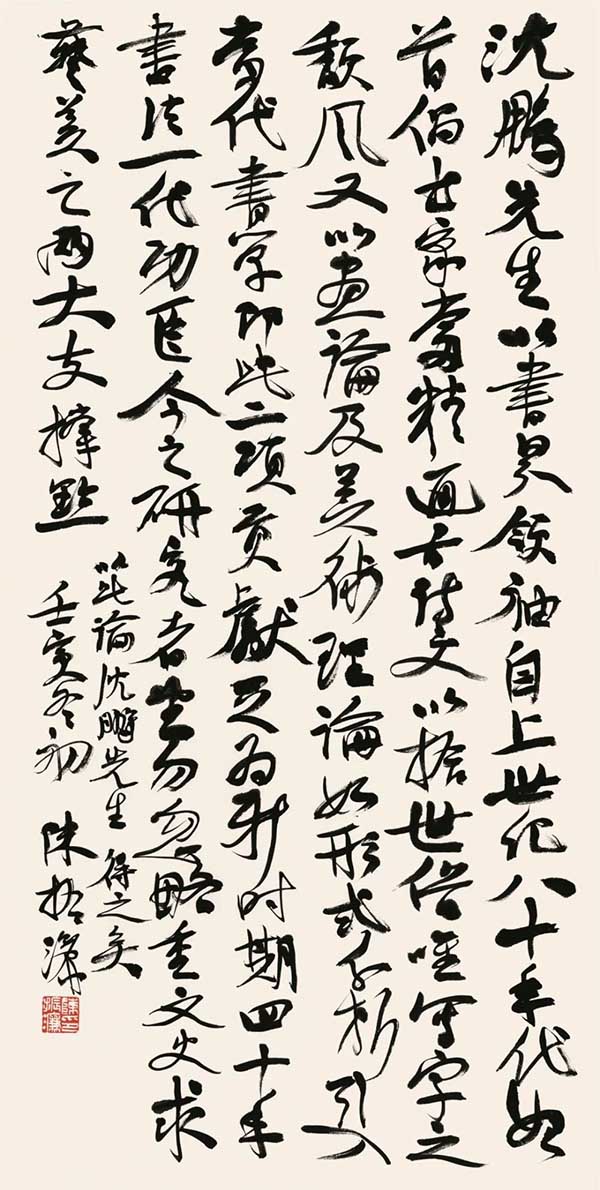 沈鹏先生以書界领袖自上世纪八十年代始
首倡书家當精通古诗文以捨世俗唯写字之
颓风又以画論及美術理論如形式分析引入
當代書学即此二项贡獻足为新时期四十年
書法一代功臣今之研究者望勿忽略重文史求
藝美之兩大支撑點
以此論沈鵬先生得之矣
壬寅冬初 陳振濂